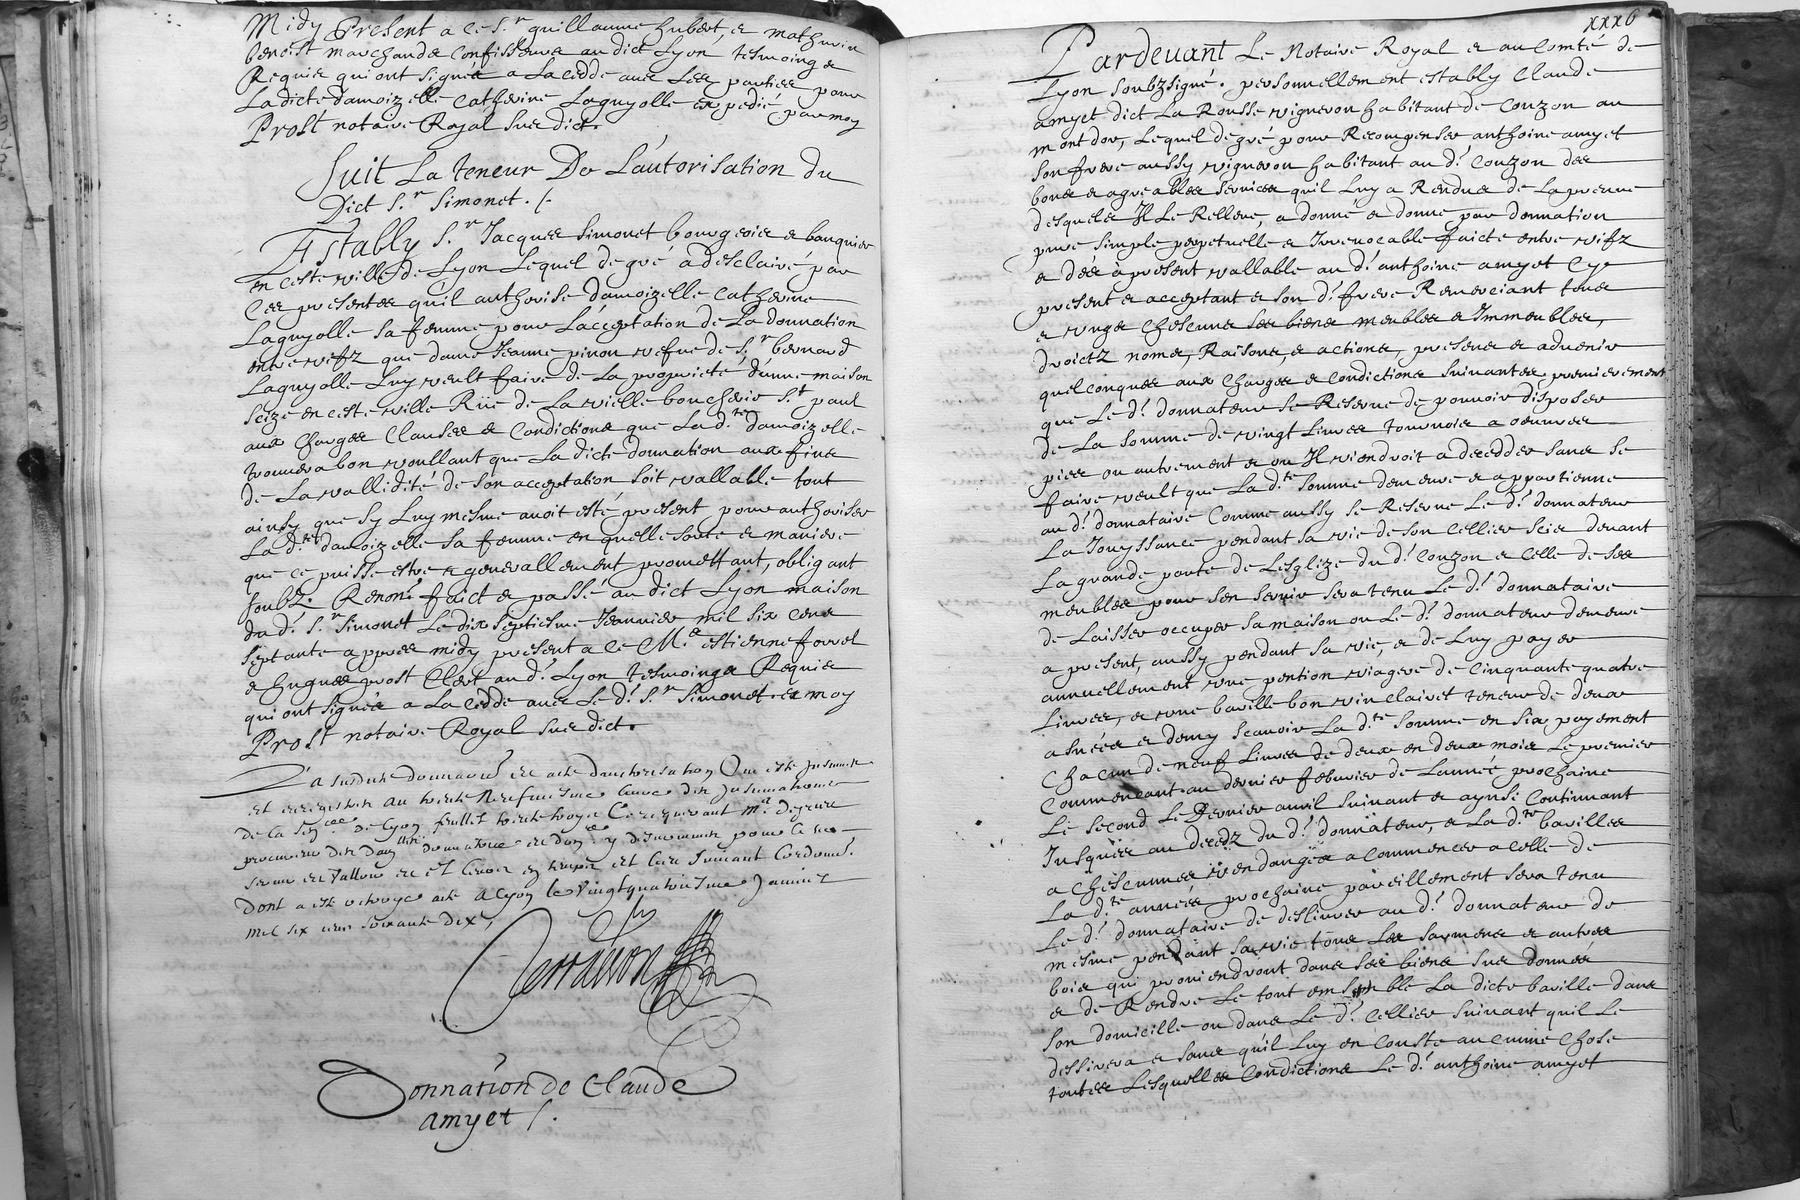 Midy Present a ce S.r guillaume hubert, et mathurin
benoist marchands confisseurs au dict Lyon tesmoings
Requis qui ont signés a La cedde avec Les parties pour
La dicte damoizelle Catherine Laguyolle expedié par moy
Prost notaire Royal susdict.
Suit La teneur De L'autorisation du
Dict S.r Simonet. /.
Establly S.r Jacques Simonet bourgeois et banquier
en ceste ville de Lyon Lequel de gré a desclairé par
Ces presentes qu'il authorise damoizelle Catherine
Laguyolle sa femme pour L'acceptation de La donnation
entre vifz que dame Jeanne pinon vefve de S.r bernard
Laguyolle Luy veult faire de La proprieté d'unne maison
seize en ceste ville Rüe de La vielle boucherie S.t paul
aux Charges Clauses et Conditions que La d.te damoizelle
trouvera bon voullant que La dicte donnation aux fins
de La vallidité de son acceptation soit vallable tout
ainsy que sy Luy mesme avoit esté present pour authoriser
La d.te damoizelle sa femme en quelle sorte et maniere
que ce puisse estre et generallement promettant, obligant
soubz. Renon.é faict et passé au dict Lyon maison
du d.t S.r Simonet Le dix septiesme Jeanvier mil six cens
septante appres midy present a ce M.e estienne forret
et hugues prost Clerc au d.t Lyon tesmoings Requis
qui ont signés a La Cedde avec Le d.t S.r Simonet et moy
Prost notaire Royal susdict.
La susdite donnation et acte d'authorisation Ont esté Insinués
et enregistrés au trente neufviesme Livre des Insinuations
de la de Lyon feuillet trente Ce requerant M.e
procureur des donatrice et pour
servir et valloir en et Lieux en temps et lieu suivant L'ordonn.
dont a esté octroyé acte a Lyon le Vingtquatriesme Janvier
mil six cens soixante dix,
Terrasson
Donnation de Claude
amyet /.
xxx6
Pardevant Le Notaire Royal et au Comté de
Lyon soubzsigné. personnellement establly Claude
amyet dict La Rousse vigneron habitant de Couzon au
mont dor, Lequel de gré pour Recompenser anthoine amyet
son frere aussy vigneron habitant au d.t Couzon des
bons et agreables services quil Luy a Rendus de La preuve
desquels Il Le Relleve, a donné et donne par donnation
pure simple perpetuelle et Irrevocable faicte entre vifz
et dés à present vallable au d.t anthoine amyet Cy
present et acceptant et son d.t frere Remerciant tous
et vungs Chescuns ses biens meubles et Immeubles,
droictz noms, Raisons, et actions, presens et advenir
quelconques aux Charges et Conditions suivantes premierement
que Le d.t donnateur se Reserve de pouvoir disposer
de La somme de vingt Livres tournois a oeuvres
pies ou autrement et ou Il viendroit a decedder sans se
faire veult que La d.te somme demeure et appartienne
au d.t donnataire Comme aussy se Reserve Le d.t donnateur
La Jouyssance pendant sa vie de son Cellier scis devant
La grande porte de Lesglize du d.t Couzon et Celle de ses
meubles pour sen servir sera tenu Le d.t donnataire
de Laisser occuper sa maison ou Le d.t donnateur demeure
a present, aussy pendant sa vie, et de Luy payer
annuellement une pention viagere de Cinquante quatre
Livres, et une barille bon vin Clairet teneur de deux
asnées et demy scavoir La d.te somme en six payement
Chacun de neuf Livres de deux en deux mois Le premier
Commencant au dernier febvrier de Lannée prochaine
Le second Le Dernier avril suivant et aynsi Continuant
Jusques au decedz du d.t donnateur, et La d.te barilles
a Chescunnes vendanges a Commencer a Celle de
La d.te année prochaine pareillement sera tenu
Le d.t donnataire de deslivrer au d.t donnateur de
mesme pendant sa vie tous Les sarmens et autres
bois qui proviendront dans ses biens sus donnés
et de Rendre Le tout ensemble La dicte barille dans
son domicille ou dans Le d.t Cellier suivant quil Le
desirera et sans qu'il Luy en Couste aucunne Chose
toutes Lesquelles Conditions Le d.t anthoine amyet